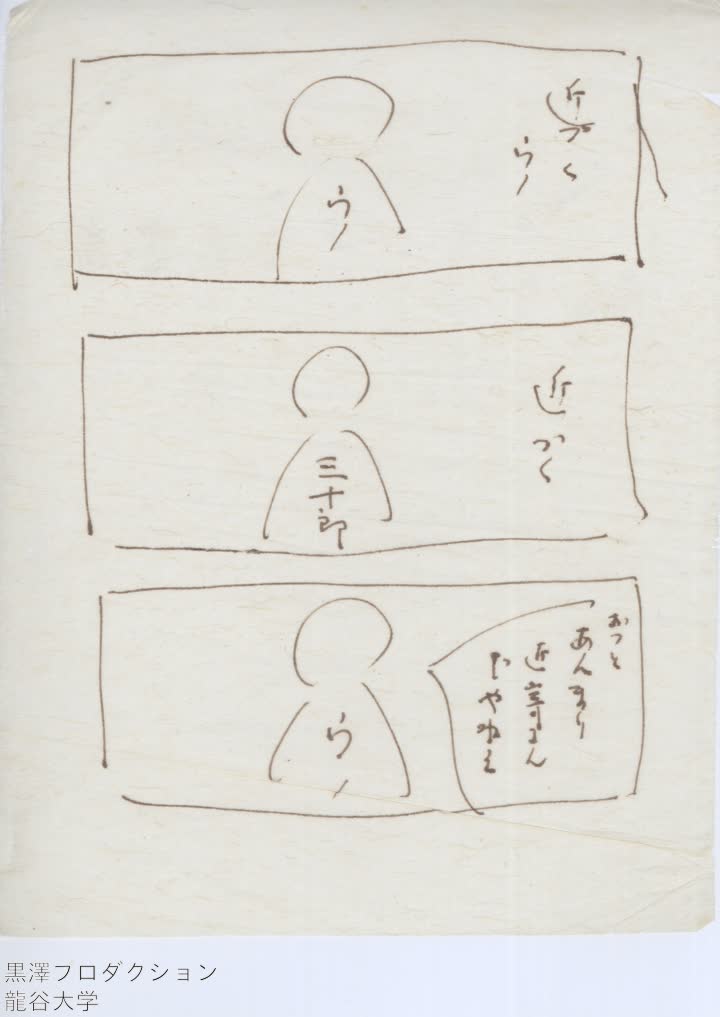 近づく
ウノ
ウノ
近つく
三十郎
おつと
あんまり
近寄るん
じやねえ
ウノ
黒澤フロダクション
龍谷大学